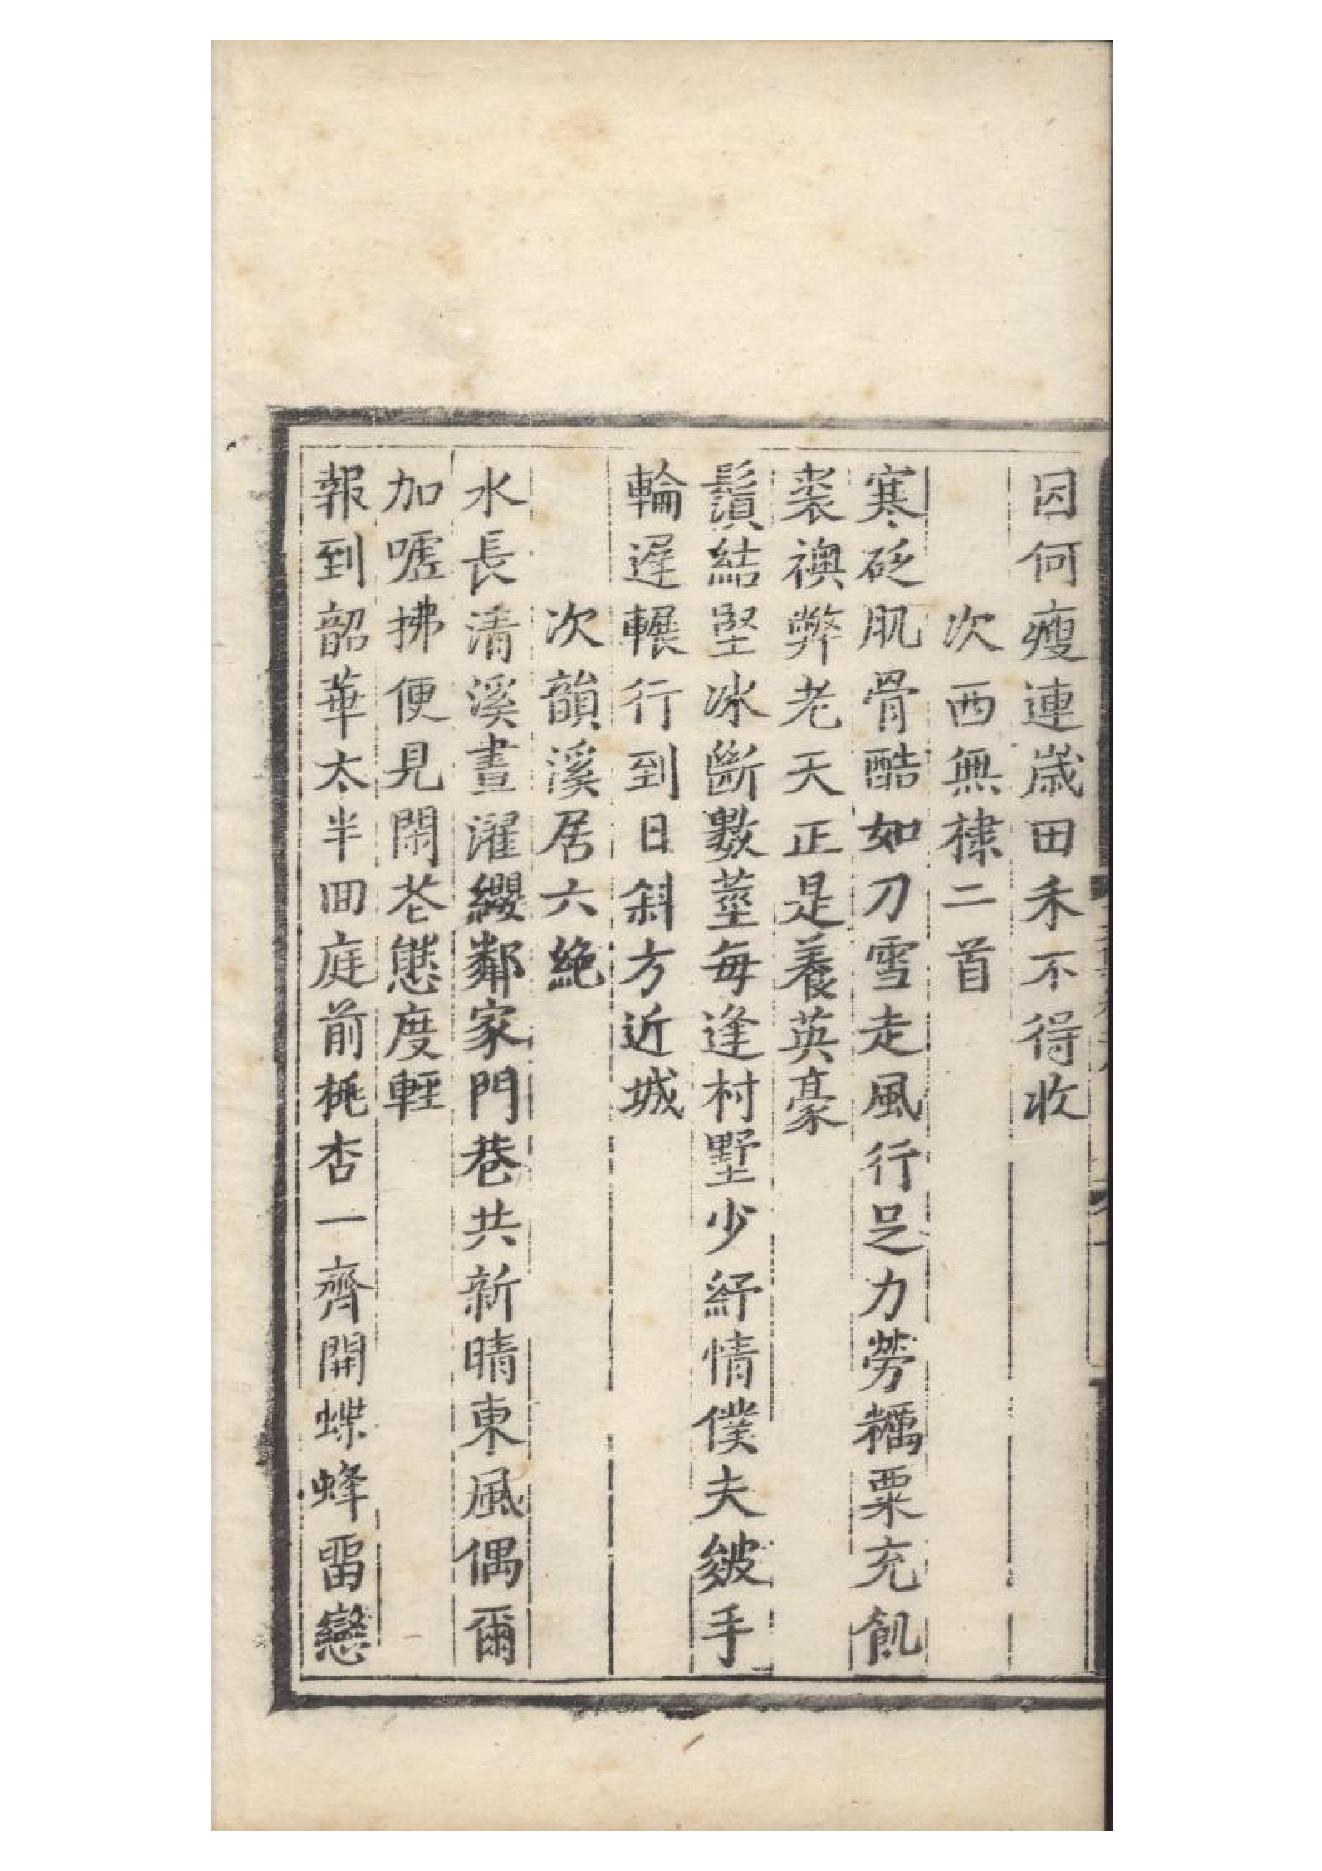 因何瘦連歳田禾不得收
次西無棣二首
寒砭肌骨酷如刀雪走風行足力勞糲粟充飢
裘襖弊老天正是養英豪
鬚結堅冰斷數莖每逢村墅少紓情僕夫皴手
輪遲輾行到日斜方近城
次韻溪居六絶
水長清溪晝濯纓鄰家門巷共新晴東風偶爾
加噓拂便見閑花態度輕
報到韶華太半回庭前桃杏一齊開蝶蜂畱戀